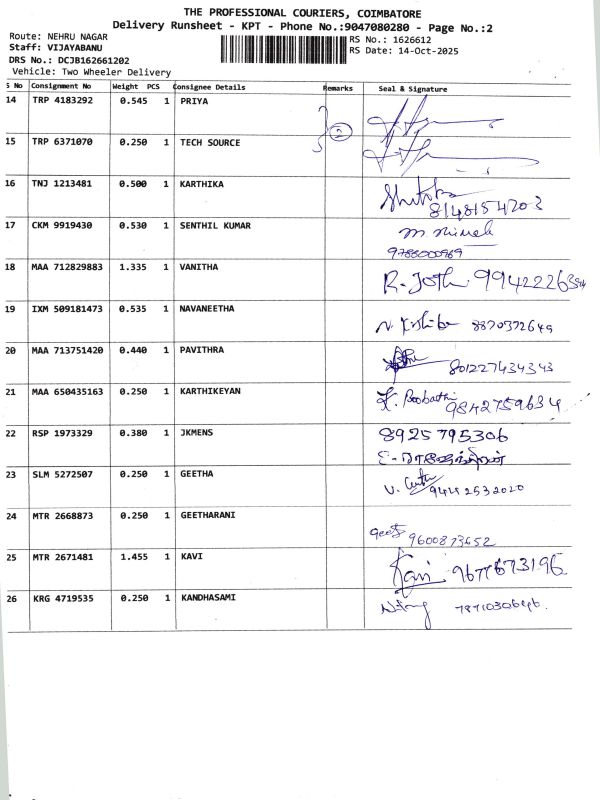 THE PROFESSIONAL COURIERS, COIMBATORE
Delivery Runsheet - KPT - Phone No.:9047080280 - Page No.:2
Route: NEHRU NAGAR
RS No.: 1626612
Staff: VIJAYABANU
RS Date: 14-Oct-2025
DRS No.: DCJB162661202
Vehicle: Two Wheeler Delivery
S No Consignment No Weight PCS Consignee Details Remarks Seal & Signature
14 TRP 4183292 0.545 1 PRIYA
2
15 TRP 6371070 0.250 1 TECH SOURCE
16 TNJ 1213481 0.500 1 KARTHIKA
8148154703
17 CKM 9919430 0.530 1 SENTHIL KUMAR
9788000969
18 MAA 712829883 1.335 1 VANITHA R. Joth
19 IXM 509181473 0.535 1 NAVANEETHA
8870372649
20 MAA 713751420 0.440 1 PAVITHRA
801227434343
21 MAA 650435163 0.250 1 KARTHIKEYAN
9842759634
22 RSP 1973329 0.380 1 JKMENS 8925795306
23 SLM 5272507 0.250 1 GEETHA
9442532020
24 MTR 2668873 0.250 1 GEETHARANI
9600873452
25 MTR 2671481 1.455 1 KAVI Kavi 9677673196
26 KRG 4719535 0.250 1 KANDHASAMI